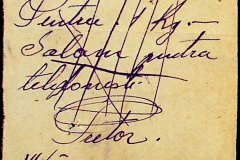 Pentru 1 Kg. –
Salam pentru
telefonisti.
Tutor.